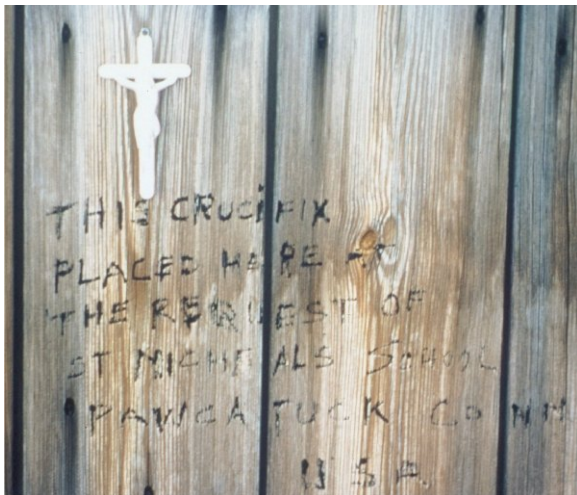 THIS CRUCIFIX
PLACED HERE AT
THE REQUEST OF
ST MICHEALS SCHOOL
PAWCATUCK CONN
USA